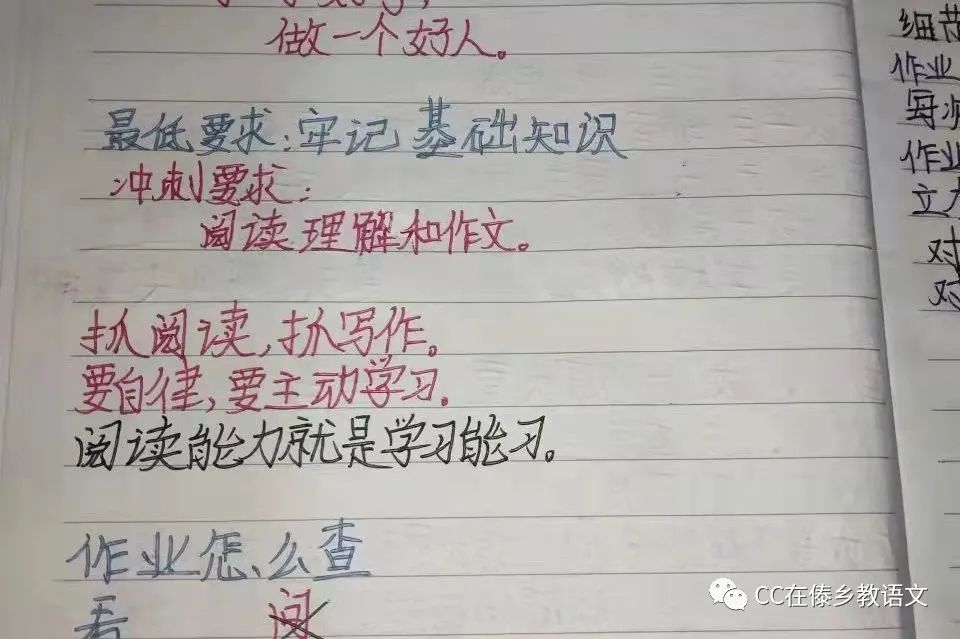 做一个好人。
最低要求:牢记基础知识
冲刺要求:
阅读理解和作文。
抓阅读,抓写作。
要自律,要主动学习.
阅读能力就是学习能习。
作业怎么查
看 问
细节
作业
写
作业
立
对
对
CC在傣乡教语文